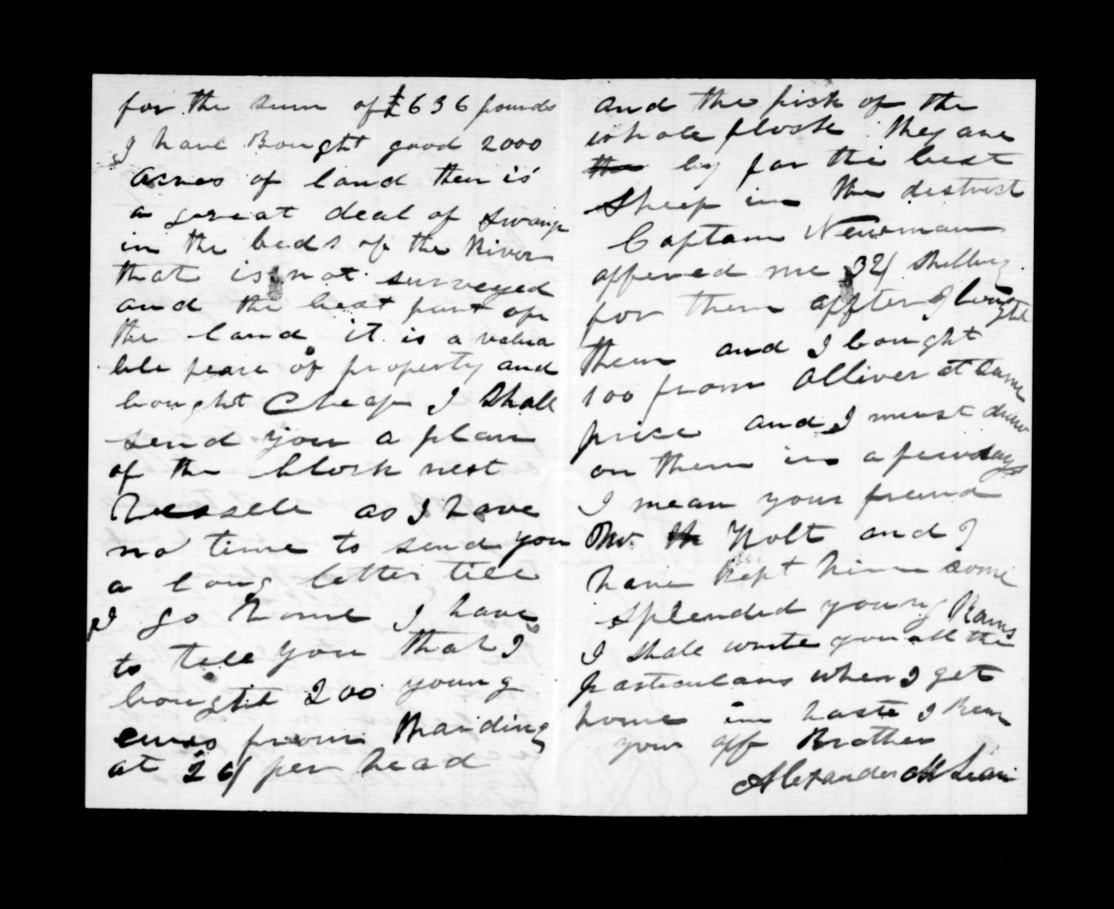 for the sum of £636 pounds
I have Bought good 2000
Acres of land then is
a great deal of swamp
in the beds of the River
that is not surveyed
and the best part of
the land it is a valua
ble peace of property and
bought Cheap I shall
send you a plan
of the block next
as I have
no time to send you
a long letter till
I go home I have
to tell you that I
bought 200 young
ewes from Harding
at 26/ per head
and the pick of the
whole flock they are
by far the best
Sheep in the district
Captain Newman
offered me 32/ shilling
for them affter I bought
them and I bought
100 from Olliver at same
price and I must draw
on them in a few days
I mean your friend
Mr. Holt and I
have kept him some
splended young Rams
I shall write you all the
particulars when I get
home in haste I Rem
your aff Brother
Alexander McLean